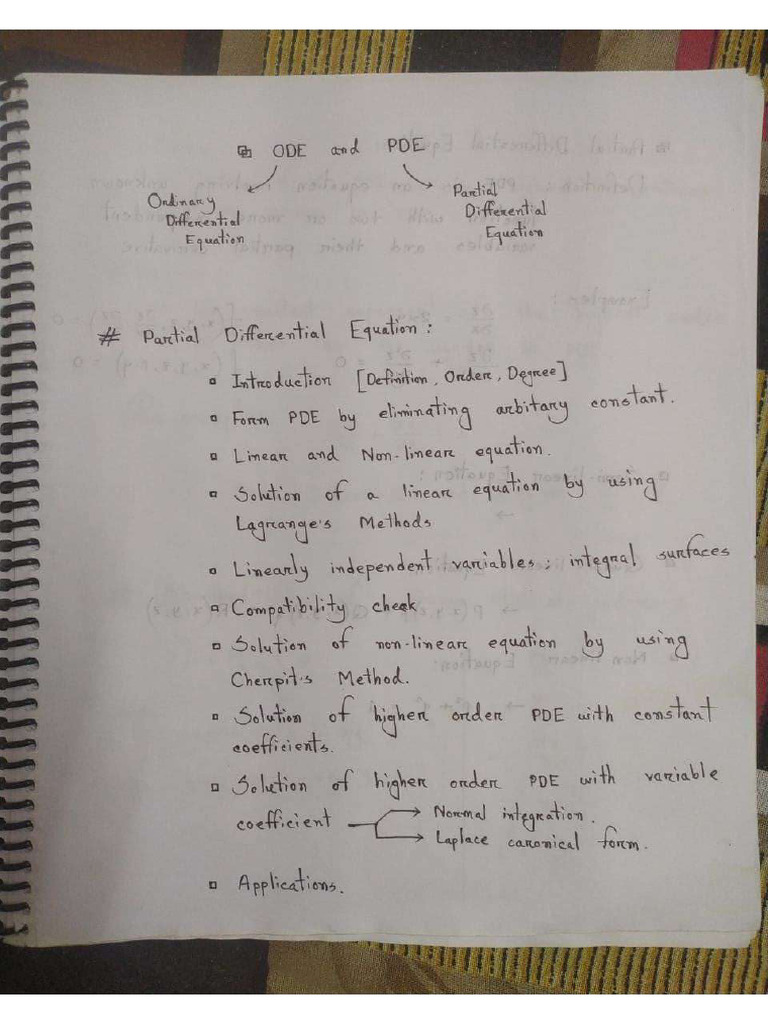 ODE and PDE
Ordinary
Differential
Equation
Partial
Differential
Equation
# Partial Differential Equation:
Introduction [Definition, Order, Degree]
Form PDE by eliminating arbitary constant.
Linear and Non-linear equation.
Solution of a linear equation by using
Lagrange's Methods
Linearly independent variables; integral surfaces
Compatibility check
Solution of non-linear equation by using
Cherpit's Method.
Solution of higher order PDE with constant
coefficients.
Solution of higher order PDE with variable
coefficient → Normal integration.
→ Laplace canonical form.
Applications.